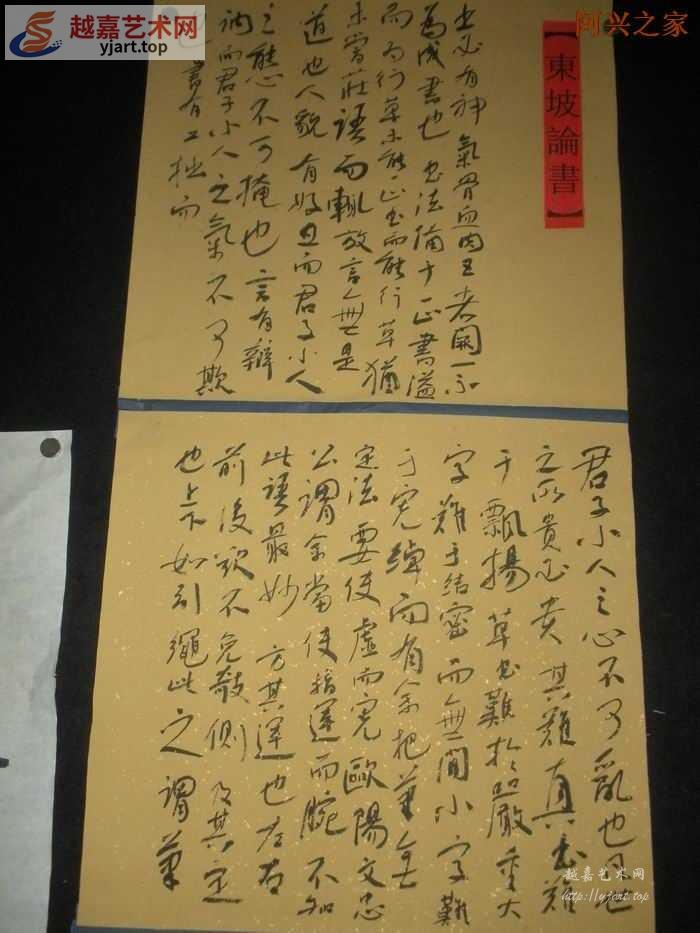 越嘉艺术网
yjart.top
阿兴之家
【東坡論書】
書必有神氣骨血肉五者闕一不
為成書也書法備于正書溢
而為行草未能正書而能行草猶
未嘗莊語而輒放言無是
道也人貌有好丑而君子小人
之態不可掩也言有辯
訥而君子小人之氣不可欺
也書有工拙而
君子小人之心不可亂也凡世
之所貴必貴其難真書難
于飄揚草書難於嚴重大
字難于結密而無間小字難
于寬綽而有余把筆無
定法要使虛而寬歐陽文忠
公謂余當使指運而腕不知
此語最妙方其運也左右
前後不免敧側及其定
也上下如引繩此之謂筆
越嘉艺术网
http://yjart.top